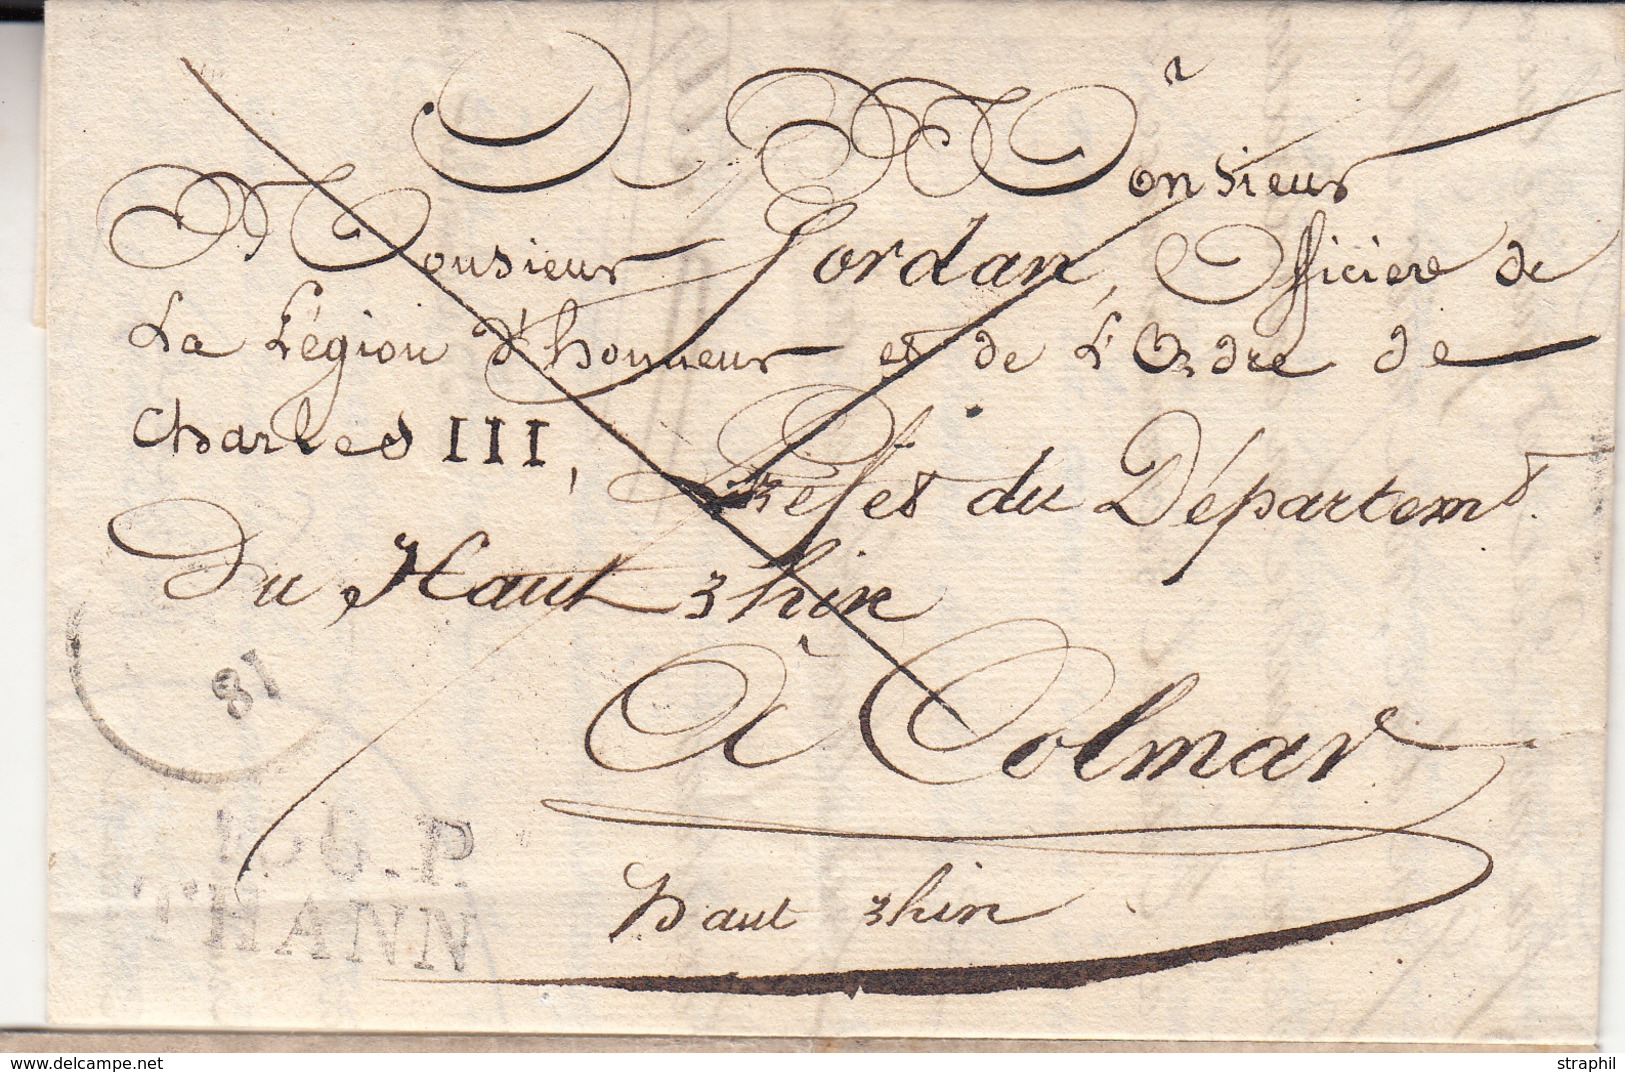 à Monsieur
Monsieur Jordan, Officiere de
La Légion d'honneur et de L'Ordre de
Charles III, Préfet du Départemt.
Du Haut Rhin
à Colmar
haut Rhin
81
66.P
THANN
straphil